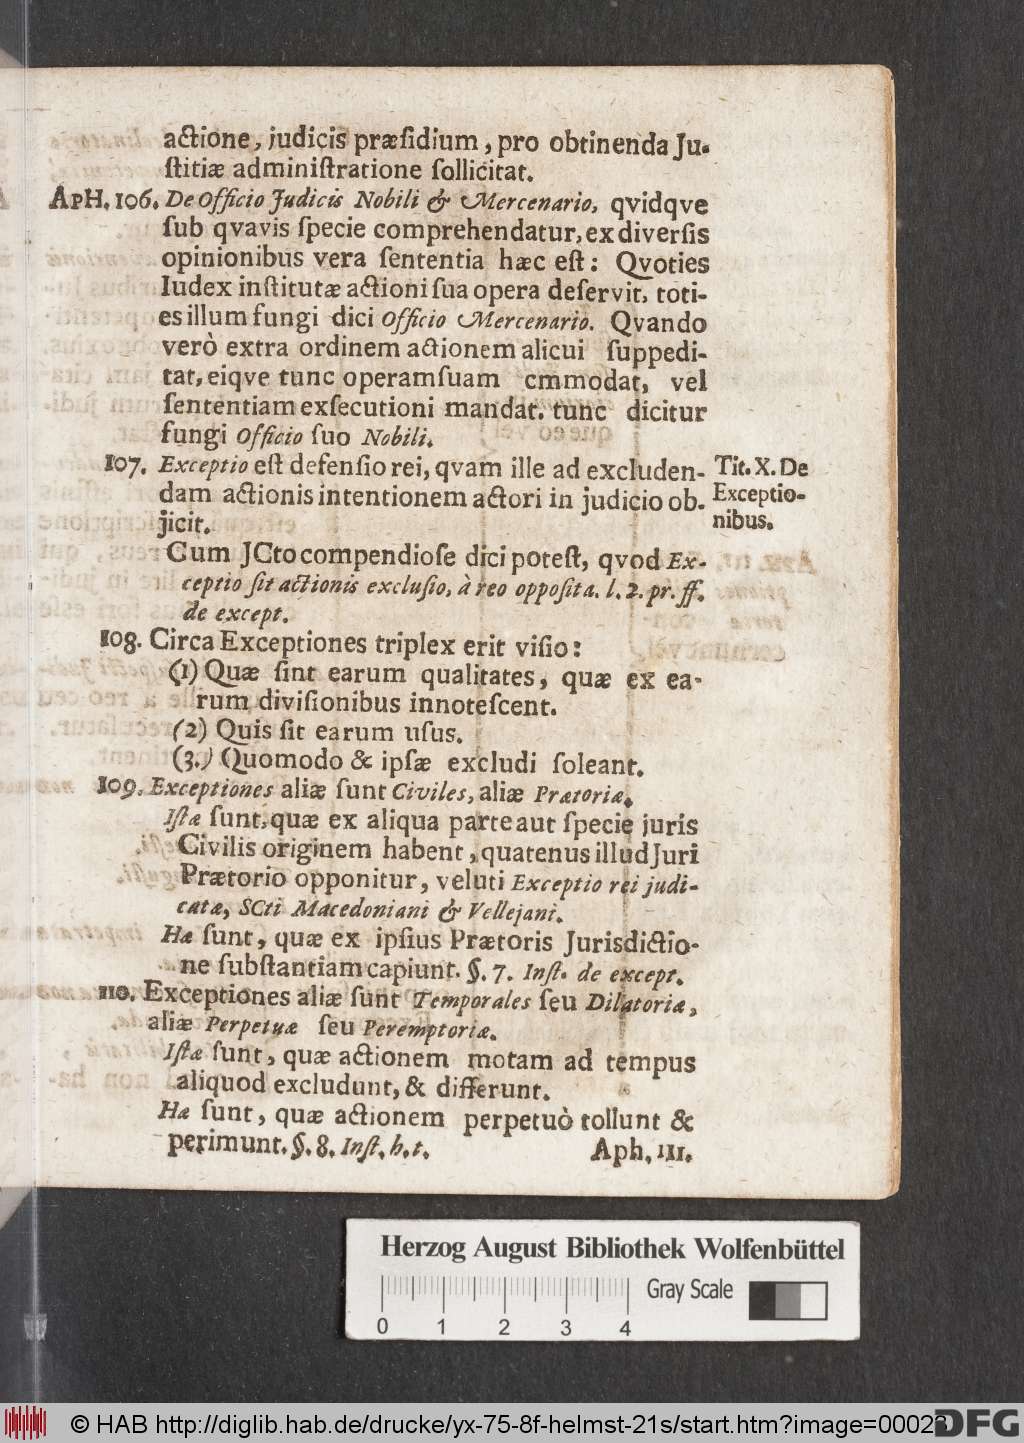 actione, judicis præsidium, pro obtinenda Ju-
stitiæ administratione sollicitat.
APH. 106. De Officio Judicis Nobili & Mercenario, qvidqve
sub qvavis specie comprehendatur, ex diversis
opinionibus vera sententia hæc est: Qvoties
Iudex institutæ actioni sua opera deservit, toti-
es illum fungi dici Officio Mercenario. Qvando
verò extra ordinem actionem alicui suppedi-
tat, eiqve tunc operam suam cmmodat, vel
sententiam exsecutioni mandat. tunc dicitur
fungi Officio suo Nobili.
107. Exceptio est defensio rei, qvam ille ad excluden-
dam actionis intentionem actori in judicio ob-
jicit.
Tit. X. De
Exceptio-
nibus.
Cum JCto compendiose dici potest, qvod Ex-
ceptio sit actionis exclusio, à reo opposita. l. 2. pr. ff.
de except.
108. Circa Exceptiones triplex erit visio:
(1) Quæ sint earum qualitates, quæ ex ea-
rum divisionibus innotescent.
(2) Quis sit earum usus.
(3.) Quomodo & ipsæ excludi soleant.
109. Exceptiones aliæ sunt Civiles, aliæ Prætoriæ.
Istæ sunt, quæ ex aliqua parte aut specie juris
Civilis originem habent, quatenus illud Juri
Prætorio opponitur, veluti Exceptio rei judi-
catæ, SCti Macedoniani & Vellejani.
Hæ sunt, quæ ex ipsius Prætoris Jurisdictio-
ne substantiam capiunt. §. 7. Inst. de except.
110. Exceptiones aliæ sunt Temporales seu Dilatoriæ,
aliæ Perpetuæ seu Peremptoriæ.
Istæ sunt, quæ actionem motam ad tempus
aliquod excludunt, & differunt.
Hæ sunt, quæ actionem perpetuò tollunt &
perimunt. §. 8. Inst. h. t.
Aph. 111.
Herzog August Bibliothek Wolfenbüttel
Gray Scale
0 1 2 3 4
© HAB http://diglib.hab.de/drucke/yx-75-8f-helmst-21s/start.htm?image=00023
DFG